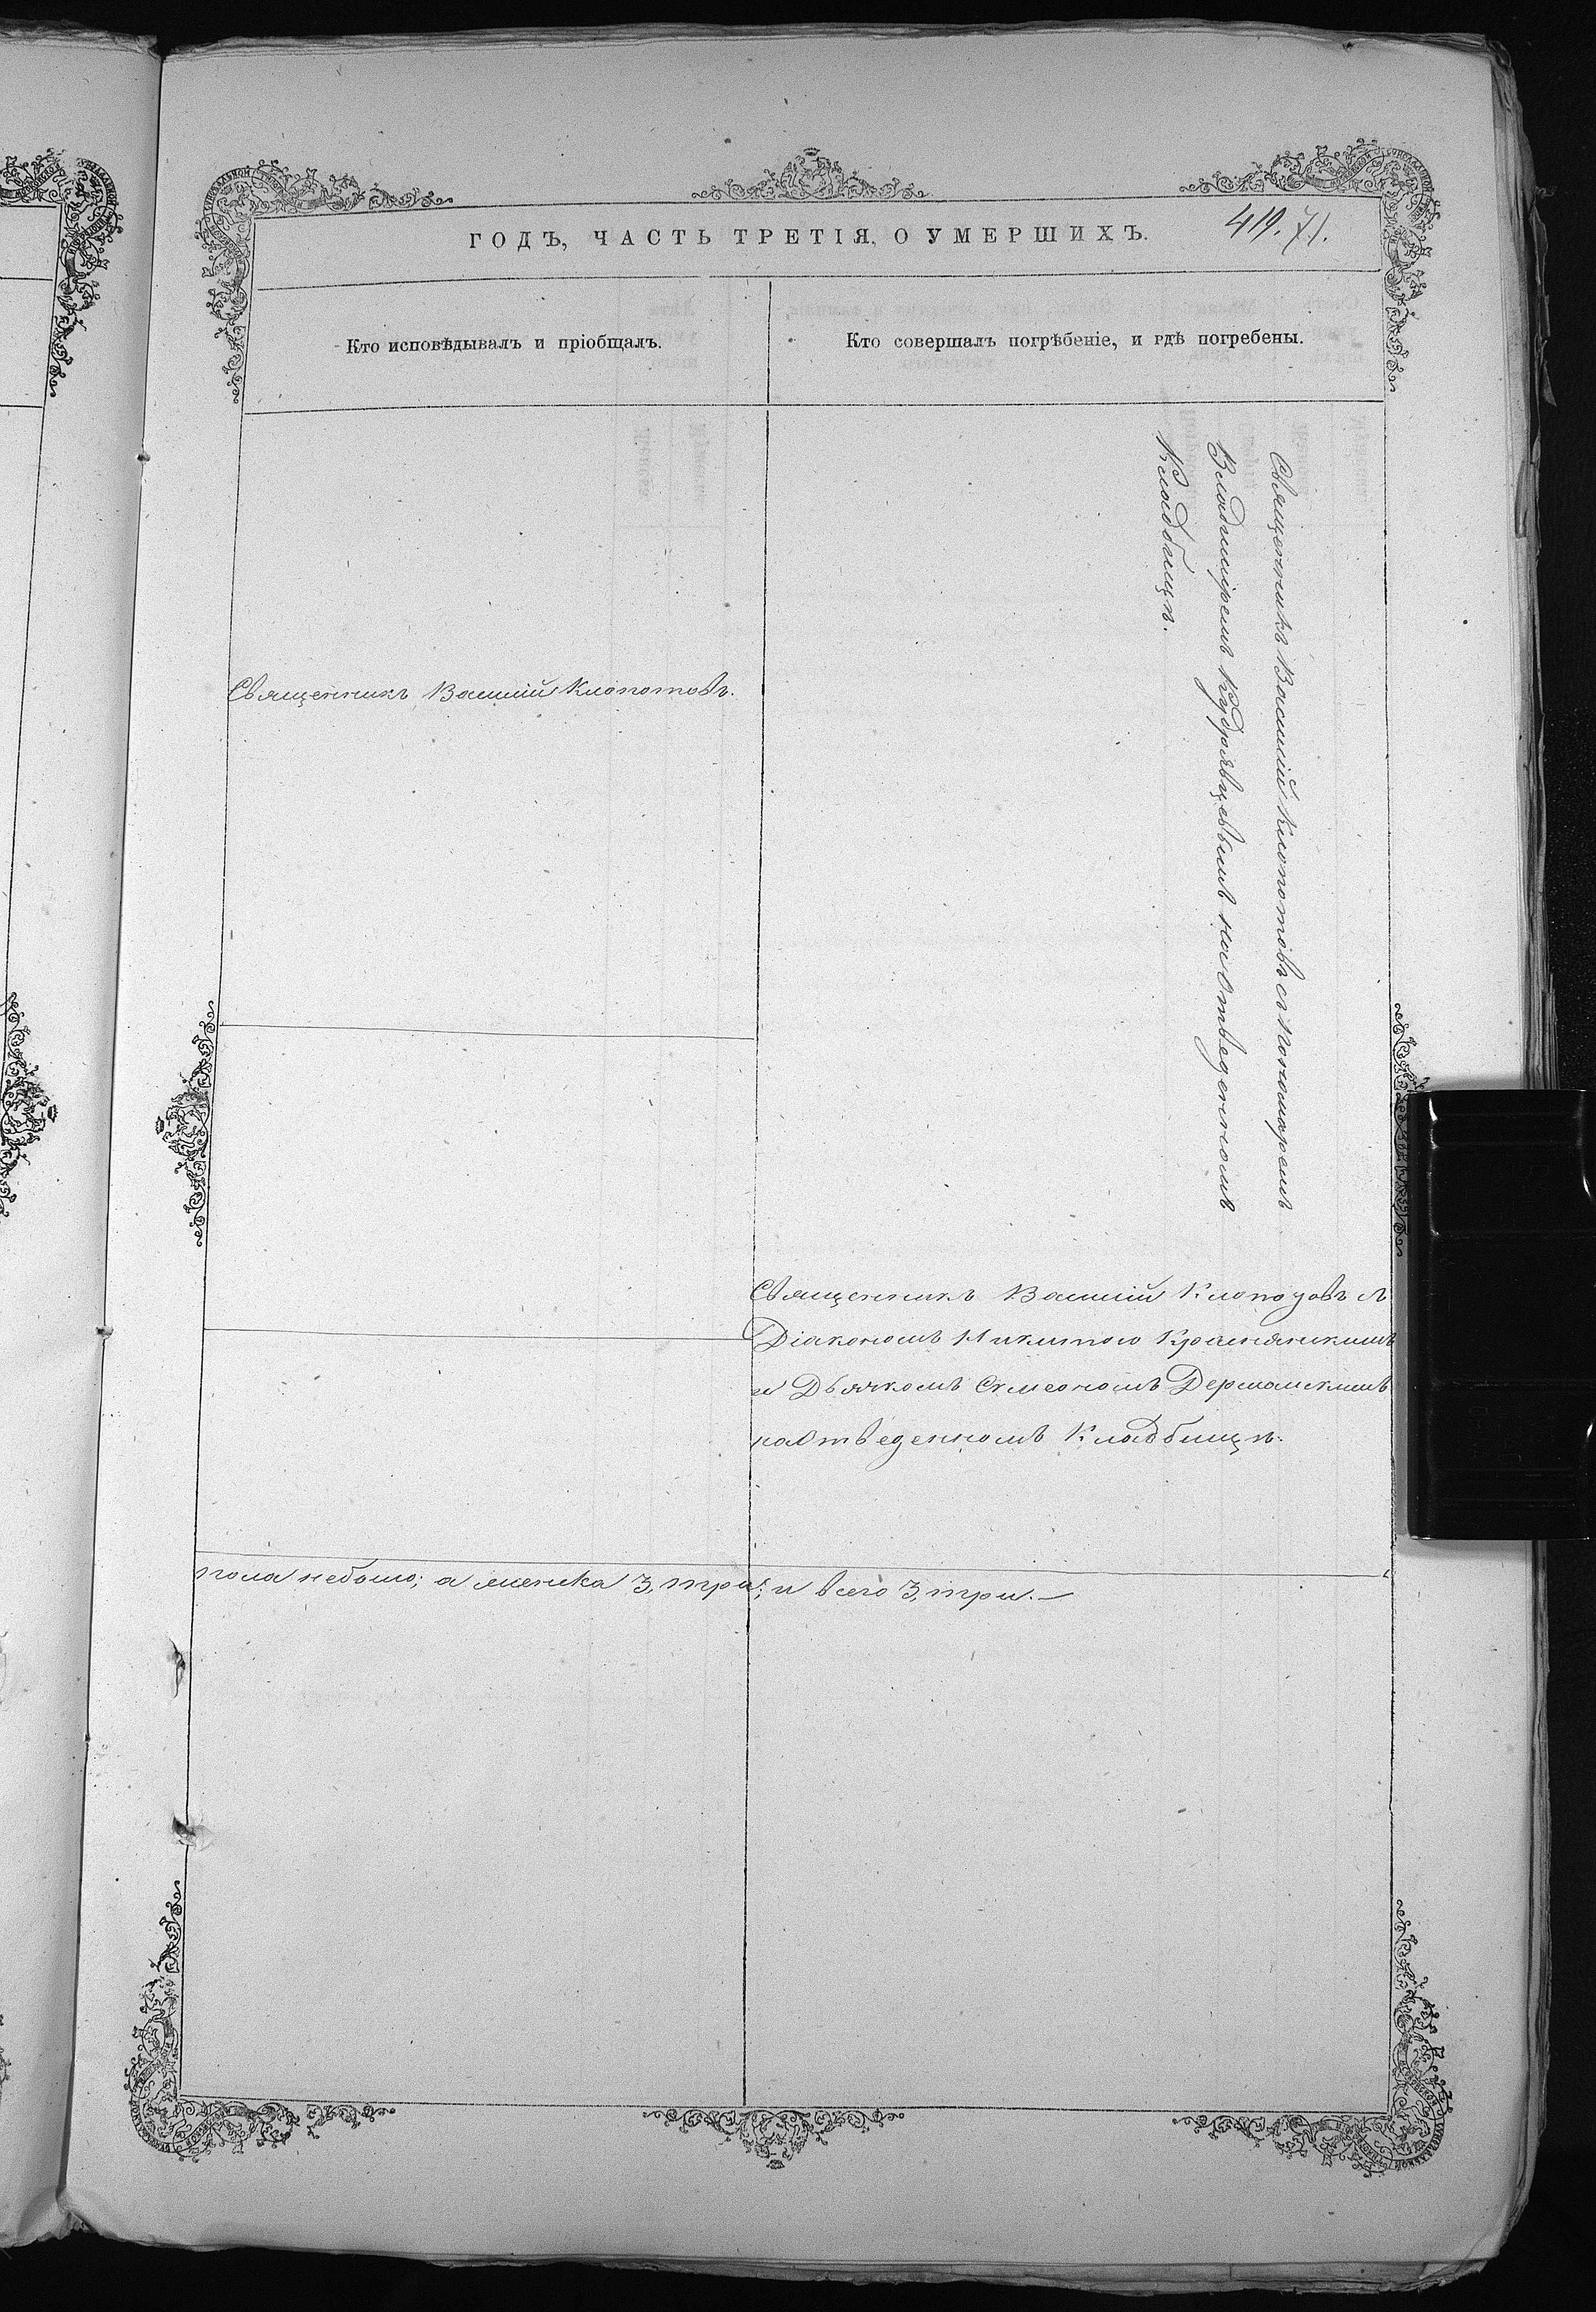 ГОДЪ, ЧАСТЬ ТРЕТІЯ, О УМЕРШИХЪ.
419. 71.
Кто исповѣдывалъ и пріобщалъ.
Кто совершалъ погрѣбеніе, и гдѣ погребены.
Священникъ Василій Клопотовъ.
Священникъ Василій Клопотовъ съ пономаремъ
Владиміремъ Кудрявцевымъ на отведенномъ
Кладбищѣ.
Священникъ Василій Клопотовъ съ
Діакономъ Никитою
и Дьячкомъ Симеономъ
на отведенномъ Кладбищѣ.
пола небыло; а женска 3, три; и всего 3, три.—